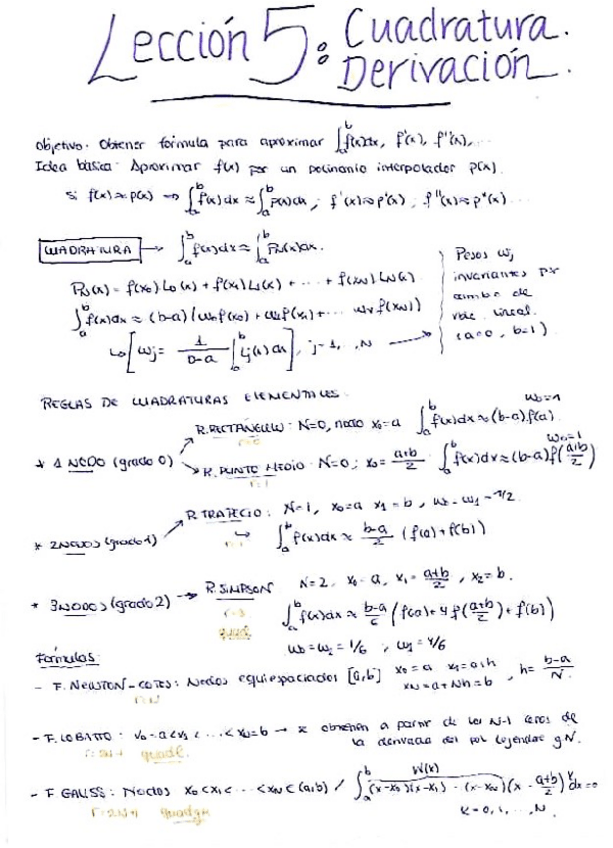 Lección 5: Cuadratura.
Derivación.
objetivo. Obtener fórmula para aproximar ∫_a^b f(x)dx, f'(x), f''(x),...
Idea básica. Aproximar f(x) por un polinomio interpolador p(x).
Si f(x)≈p(x) → ∫_a^b f(x)dx ≈ ∫_a^b p(x)dx ; f'(x)≈p'(x) ; f''(x)≈p''(x)...
CUADRATURA → ∫_a^b f(x)dx ≈ ∫_a^b P_N(x)dx.
P_N(x) = f(x_0) L_0(x) + f(x_1) L_1(x) + ... + f(x_N) L_N(x)
∫_a^b f(x)dx ≈ (b-a)(w_0 f(x_0) + w_1 f(x_1) + ... w_N f(x_N))
↳ [w_j = 1/(b-a) ∫_a^b L_j(x)dx], j=1,..,N →
Pesos w_j
invariantes por
cambio de
vble. lineal.
(a=0, b=1)
REGLAS DE CUADRATURAS ELEMENTALES.
* 1 NODO (grado 0)
R.RECTANGULO: N=0, nodo x_0=a ∫_a^b f(x)dx≈(b-a)f(a) w_0=1
r=0
R. PUNTO MEDIO: N=0; x_0=(a+b)/2 ∫_a^b f(x)dx≈(b-a)f((a+b)/2) w_0=1
r=1
* 2 NODOS (grado 1)
R TRAPECIO: N=1, x_0=a x_1=b, w_0=w_1=1/2
r=1 ↳ ∫_a^b f(x)dx ≈ (b-a)/2 (f(a)+f(b))
* 3 NODOS (grado 2) → R.SIMPSON N=2. x_0=a, x_1=(a+b)/2, x_2=b.
r=3 ∫_a^b f(x)dx ≈ (b-a)/6 (f(a)+4f((a+b)/2)+f(b))
quad
w_0=w_2=1/6 ; w_1=4/6
Fórmulas:
- F. NEWTON-COTES: Nodos equiespaciados [a,b] x_0=a x_1=a+h x_N=a+Nh=b, h=(b-a)/N.
r=N
- F. LOBATTO: x_0=a<x_1<...<x_N=b → se obtienen a partir de los N-1 ceros de
la derivada del pol Legendre g N.
quadl.
- F GAUSS: Nodos x_0<x_1<...<x_N∈(a,b) / ∫_a^b W(x) (x-x_0)(x-x_1)...(x-x_N)(x-(a+b)/2)^k dx=0
r=2N+1 quadgk
K=0,1,...,N.